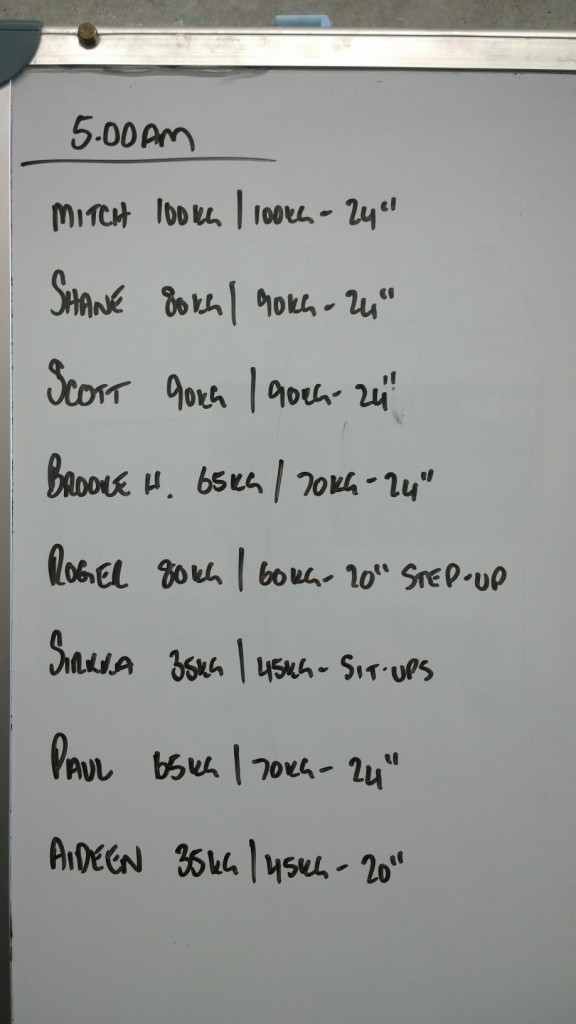 5.00AM
MITCH 100KG | 100KG - 24"
SHANE 80KG | 90KG - 24"
SCOTT 90KG | 90KG - 24"
BROOKE H. 65KG | 70KG - 24"
ROGER 80KG | 60KG - 20" STEP-UP
SIRKKA 35KG | 45KG - SIT-UPS
PAUL 65KG | 70KG - 24"
AIDEEN 35KG | 45KG - 20"